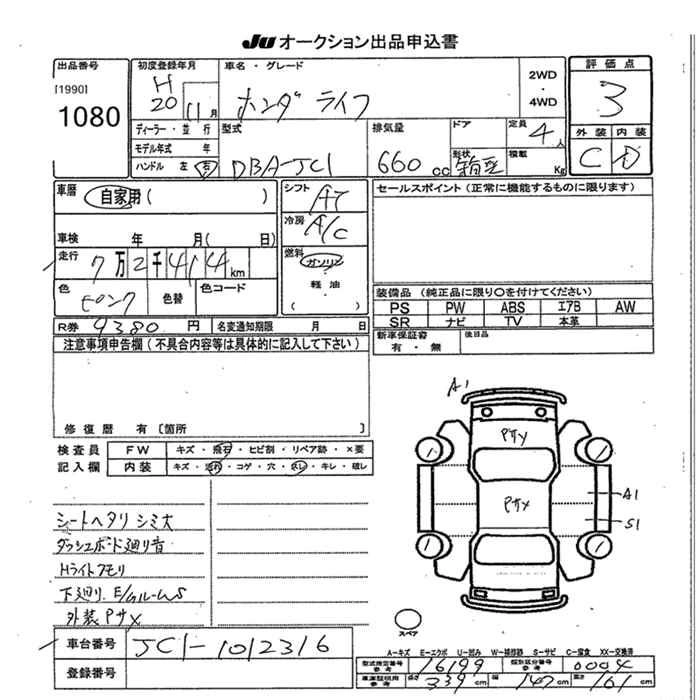 JU オークション出品申込書
出品番号
[1990]
1080
初度登録年月
H
20 11月
車名・グレード
ホンダ ライフ
2WD
・
4WD
評価点
3
外装 内装
C D
ディーラー・並行
モデル年式 年
ハンドル 左 右
型式
DBA-JC1
排気量
660 cc
ドア
形状
箱型
定員
4人
積載
Kg
車歴
自家用( )
車検 年 月( 日)
走行
7万2千414km
色
ピンク
色替
色コード
シフト
AT
冷房
A/C
燃料
ガソリン
・
軽油
・
( )
セールスポイント(正常に機能するものに限ります)
装備品 (純正品に限り○を付けてください)
PS PW ABS エアB AW
SR ナビ TV 本革
新車保証書
有・無
後日品
R券 9380 円
名変通知期限 月 日
注意事項申告欄(不具合内容等は具体的に記入して下さい)
修復歴 有〔箇所 〕
検査員
記入欄
FW キズ・飛石・ヒビ割・リペア跡・×要
内装 キズ・汚れ・コゲ・穴・スレ・キレ・破レ
シートヘタリ シミ大
ダッシュボード廻り音
Hライトクモリ
下廻り、
外装
A1
1
1
A1
S1
1
1
スペア
車台番号 JC1-1012316
登録番号
A-キズ E-エクボ U-凹み W-補修跡 S-サビ C-腐食 XX-交換済
型式指定番号
参考
16199
類別区分番号
参考
0004
車庫証明用
参考
長さ 339 cm 幅 147 cm 高さ 161 cm